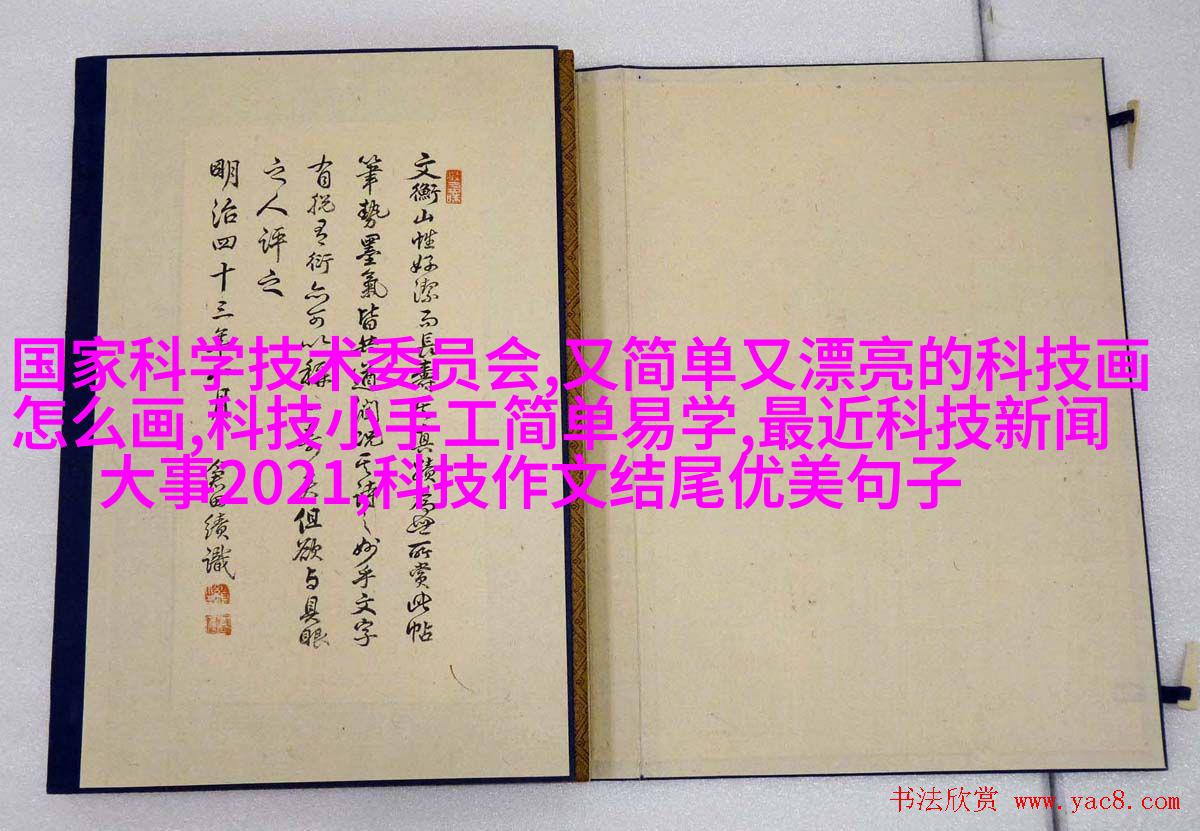 文衡山性好潔而長壽真蹟所賞此帖
筆勢墨氣皆妙乎文字
有挩有衍亦可以但欲与具眼
之人評之
明治四十三年月倉田績識
国家科学技术委员会,又简单又漂亮的科技画
怎么画,科技小手工简单易学,最近科技新闻
大事2021,科技作文结尾优美句子
书法欣赏 www.yac8.com